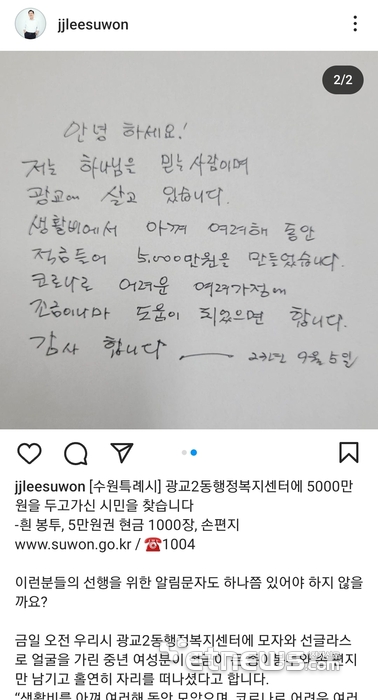 jjleesuwon
2/2
안녕 하세요!
저는 하나님을 믿는 사람이며
광교에 살고 있습니다.
생활비에서 아껴 여러해 동안
적금들어 5,000만원을 만들었습니다.
코로나로 어려운 여러가정에
조금이나마 도움이 되었으면 합니다.
감사 합니다 23년 9월 5일
jjleesuwon [수원특례시] 광교2동행정복지센터에 5000만
원을 두고가신 시민을 찾습니다
-흰 봉투, 5만원권 현금 1000장, 손편지
www.suwon.go.kr / ☎️1004
이런분들의 선행을 위한 알림문자도 하나쯤 있어야 하지 않을
까요?
금일 오전 우리시 광교2동행정복지센터에 모자와 선글라스
로 얼굴을 가린 중년 여성분이 손편지
만 남기고 홀연히 자리를 떠나셨다고 합니다.
"생활비를 아껴 여러해 동안 모았으며, 코로나로 어려운 여러
etnews.com